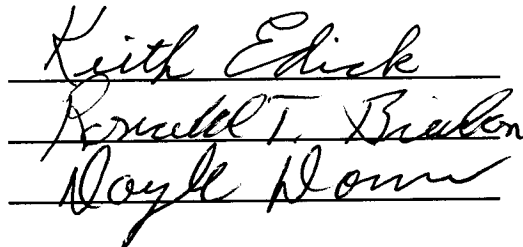 Keith Edick
Ronald T. Bialon
Doyle